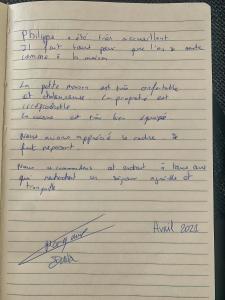 Philippe a été très accueillant
Il fait tout pour que l'on se sente
comme à la maison
La petite maison est très confortable
et chaleureuse. La propreté est
irréprochable.
La cuisine est très bien équipée
Nous avons apprécié le cadre
fort reposant
Nous recommandons cet endroit à tous ceux
qui recherchent un séjour agréable et
tranquille
Avril 2021